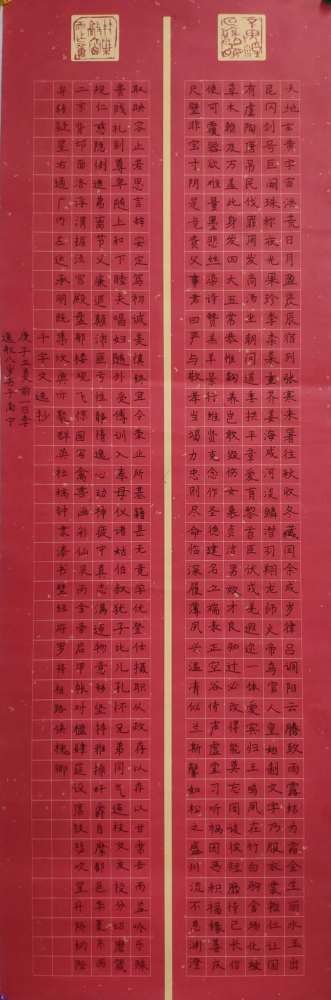 天地玄黄宇宙洪荒日月盈昃辰宿列张寒来暑往秋收冬藏闰余成岁律吕调阳云腾致雨露结为霜金生丽水玉出
昆冈剑号巨阙珠称夜光果珍李柰菜重芥姜海咸河淡鳞潜羽翔龙师火帝鸟官人皇始制文字乃服衣裳推位让国
有虞陶唐吊民伐罪周发商汤坐朝问道垂拱平章爱育黎首臣伏戎羌遐迩一体率宾归王鸣凤在竹白驹食场化被
草木赖及万盖此身发四大五常恭惟鞠养岂敢毁伤女慕贞洁男效才良知过必改得能莫忘罔谈彼短靡恃己长信
使可覆器欲难量墨悲丝染诗赞羔羊景行维贤克念作圣德建名立端表正空谷传声虚堂习听祸因恶积福缘善庆
尺璧非宝寸阴是竞资父事君曰严与敬孝当竭力忠则尽命临深履薄夙兴温凊似兰斯馨如松之盛川流不息渊澄
取映容止若思言辞安定笃初诚美慎终宜令荣业所基籍甚无竟学优登仕摄职从政存以存以甘棠去而益咏乐殊
贵贱礼别尊卑随上和下睦夫唱妇随外受傅训入奉母仪诸姑伯叔犹子比儿孔怀兄弟同气连枝交友投分切磨箴
规仁慈隐恻造弗离节义廉退颠沛匪亏性静情逸心动神疲守真志满逐物意移坚持雅操好爵自縻都邑华夏东西
二京背邙面洛浮渭据泾宫殿盘郁楼观飞惊图写禽兽画彩仙灵丙舍傍启甲帐对楹肆筵设席鼓瑟吹笙升阶纳陛
弁转疑星右通广内左达承明既集坟典亦聚群英杜稿钟隶漆书壁经府罗将相路侠槐卿
千字文选抄
庚子立夏前日李
逸航八岁半于南宁